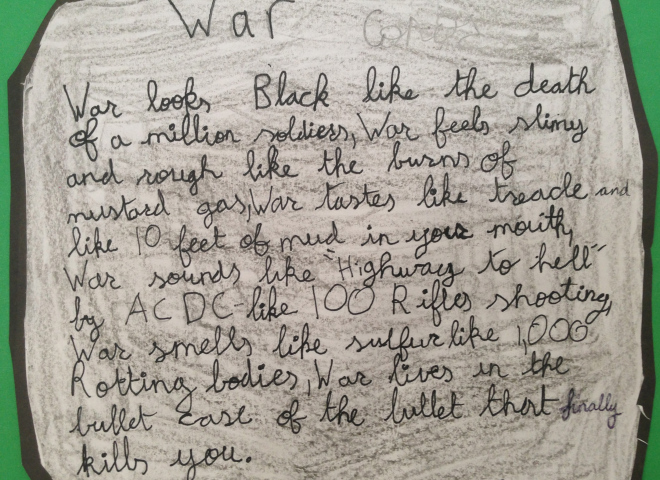 War
War looks Black like the death
of a million soldiers, War feels slimy
and rough like the burns of
mustard gas, War tastes like treacle and
like 10 feet of mud in your mouth,
War sounds like "Highway to hell"
by AC DC - like 100 Rifles shooting,
War smells like sulfur like 1,000
Rotting bodies, War lives in the
bullet case of the bullet that finally
kills you.